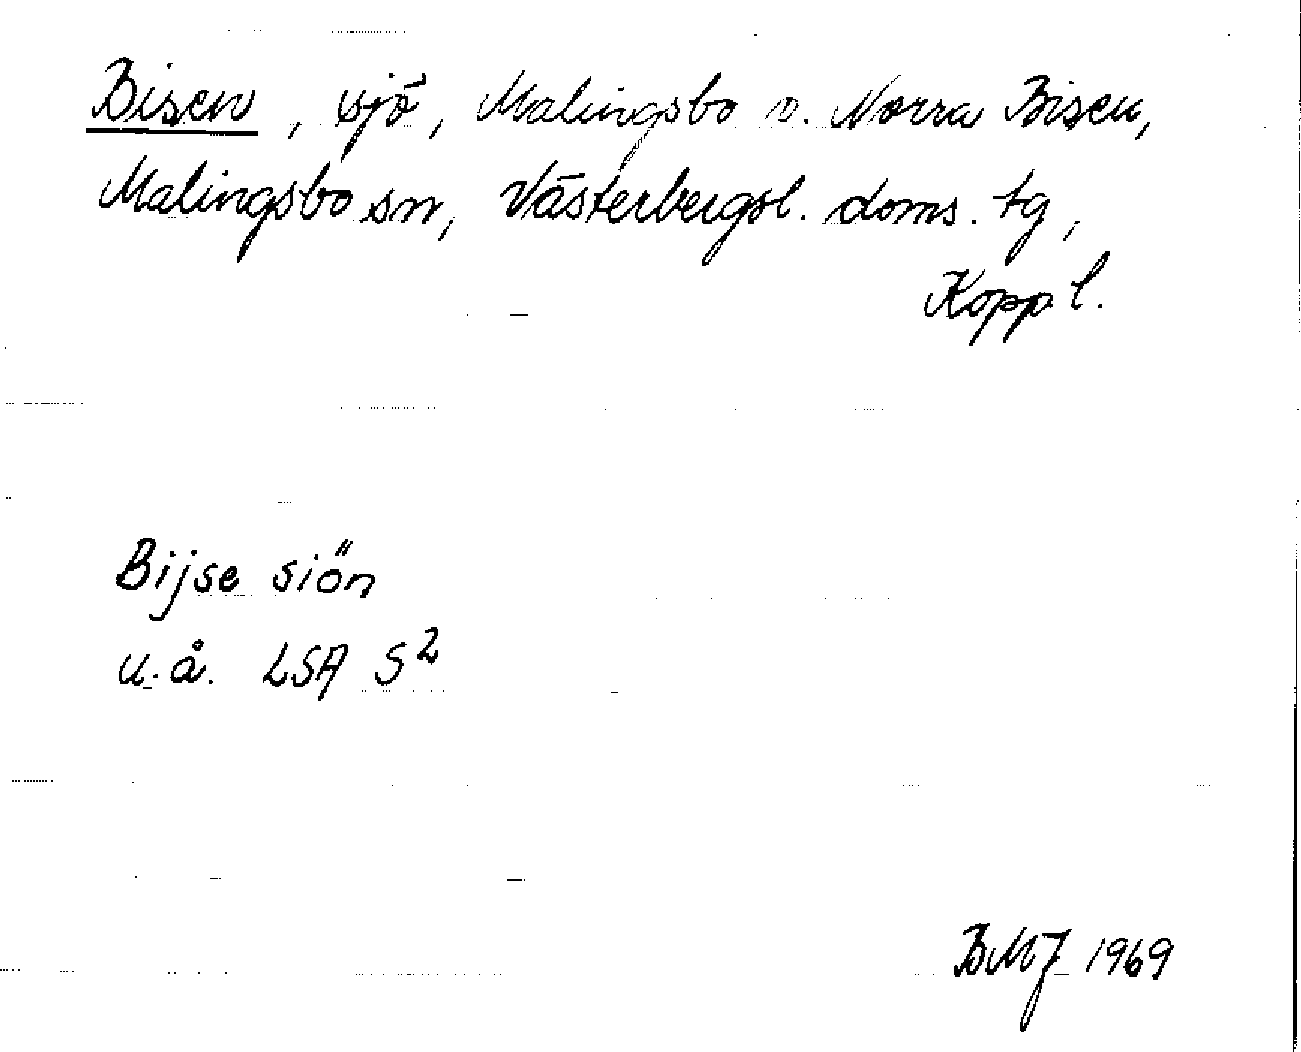 Bisen, sjö, Malingsbo o. Norra Bisen,
Malingsbo sn, Västerbergsl. doms. tg,
Kopp l.
Bijse siön
u. å. LSA S²
BMJ 1969